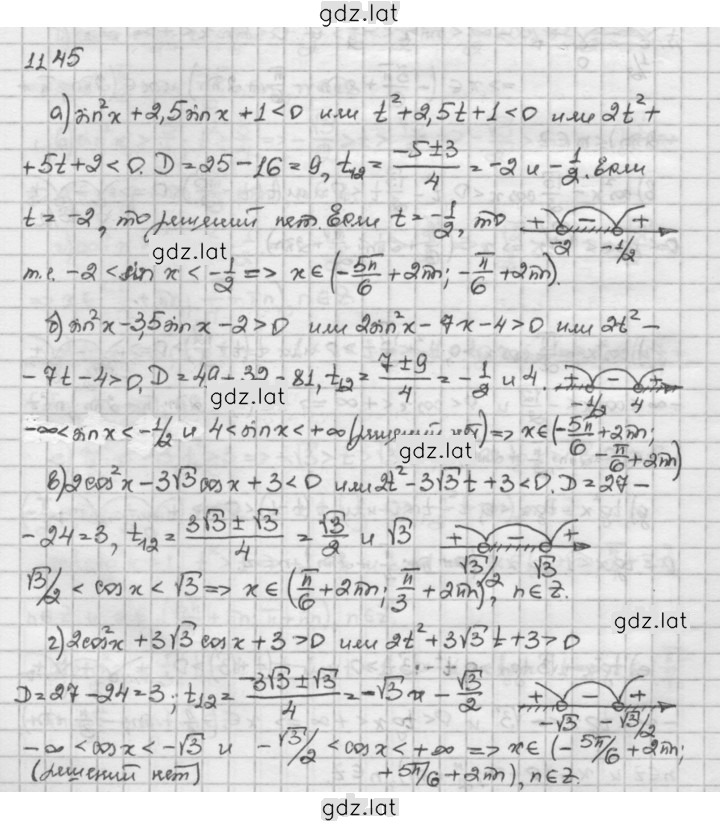 gdz.lat
1145
а) sin²x + 2,5 sin x + 1 < 0 или t² + 2,5t + 1 < 0 или 2t² +
+ 5t + 2 < 0. D = 25 - 16 = 9, t₁₂ = (-5 ± 3)/4 = -2 и -1/2. Если
t = -2, то решений нет. Если t = -1/2, то + - + -2 -1/2
gdz.lat
т.е. -2 < sin x < -1/2 => x ∈ (-5π/6 + 2πn; -π/6 + 2πn).
б) sin²x - 3,5 sin x - 2 > 0 или 2sin²x - 7x - 4 > 0 или 2t² -
- 7t - 4 > 0. D = 49 + 32 = 81, t₁₂ = (7 ± 9)/4 = -1/2 и 4. + - + -1/2 4
gdz.lat
-∞ < sin x < -1/2 и 4 < sin x < +∞ (решений нет) => x ∈ (-5π/6 + 2πn;
gdz.lat
-π/6 + 2πn)
в) 2cos²x - 3√3 cos x + 3 < 0 или 2t² - 3√3 t + 3 < 0. D = 27 -
- 24 = 3, t₁₂ = (3√3 ± √3)/4 = √3/2 и √3 + - + √3/2 √3
√3/2 < cos x < √3 => x ∈ (π/6 + 2πn; π/3 + 2πn), n ∈ Z.
gdz.lat
г) 2cos²x + 3√3 cos x + 3 > 0 или 2t² + 3√3 t + 3 > 0
gdz.lat
D = 27 - 24 = 3; t₁₂ = (-3√3 ± √3)/4 = -√3 и -√3/2 + - + -√3 -√3/2
-∞ < cos x < -√3 и -√3/2 < cos x < +∞ => x ∈ (-5π/6 + 2πn;
(решений нет) + 5π/6 + 2πn), n ∈ Z.
gdz.lat